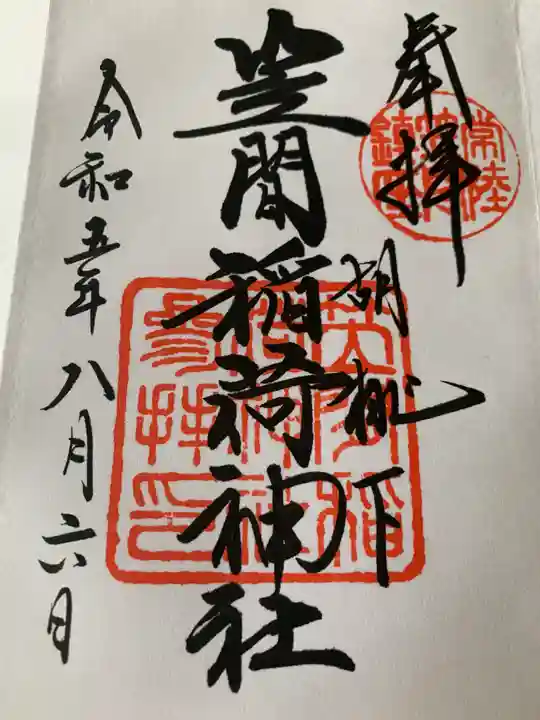 奉拝
胡桃下
笠間稲荷神社
令和五年八月六日
常陸
笠間稲
荷神社
参拝印